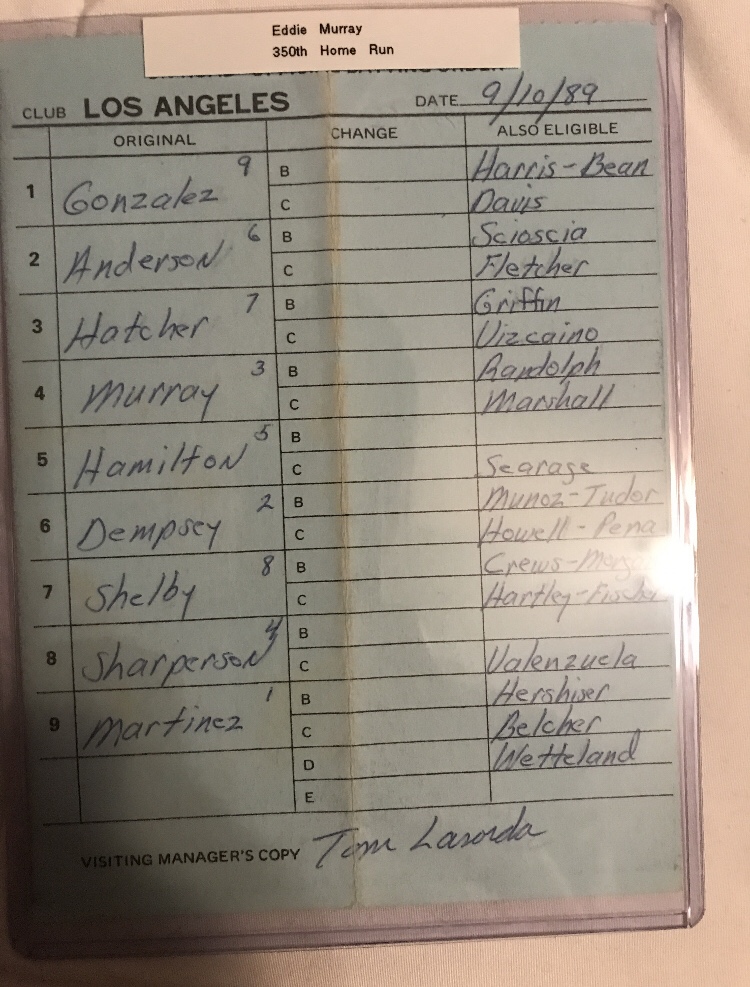 Eddie Murray
350th Home Run
CLUB LOS ANGELES DATE 9/10/89
ORIGINAL CHANGE ALSO ELIGIBLE
1 Gonzalez 9 B Harris-Bean
C Davis
2 Anderson 6 B Scioscia
C Fletcher
3 Hatcher 7 B Griffin
C Vizcaino
4 Murray 3 B Randolph
C Marshall
5 Hamilton 5 B
C Searage
6 Dempsey 2 B Munoz-Tudor
C Howell-Pena
7 Shelby 8 B Crews-
C Hartley-
8 Sharperson 4 B
C Valenzuela
9 Martinez 1 B Hershiser
C Belcher
D Wetteland
E
VISITING MANAGER'S COPY Tom Lasorda